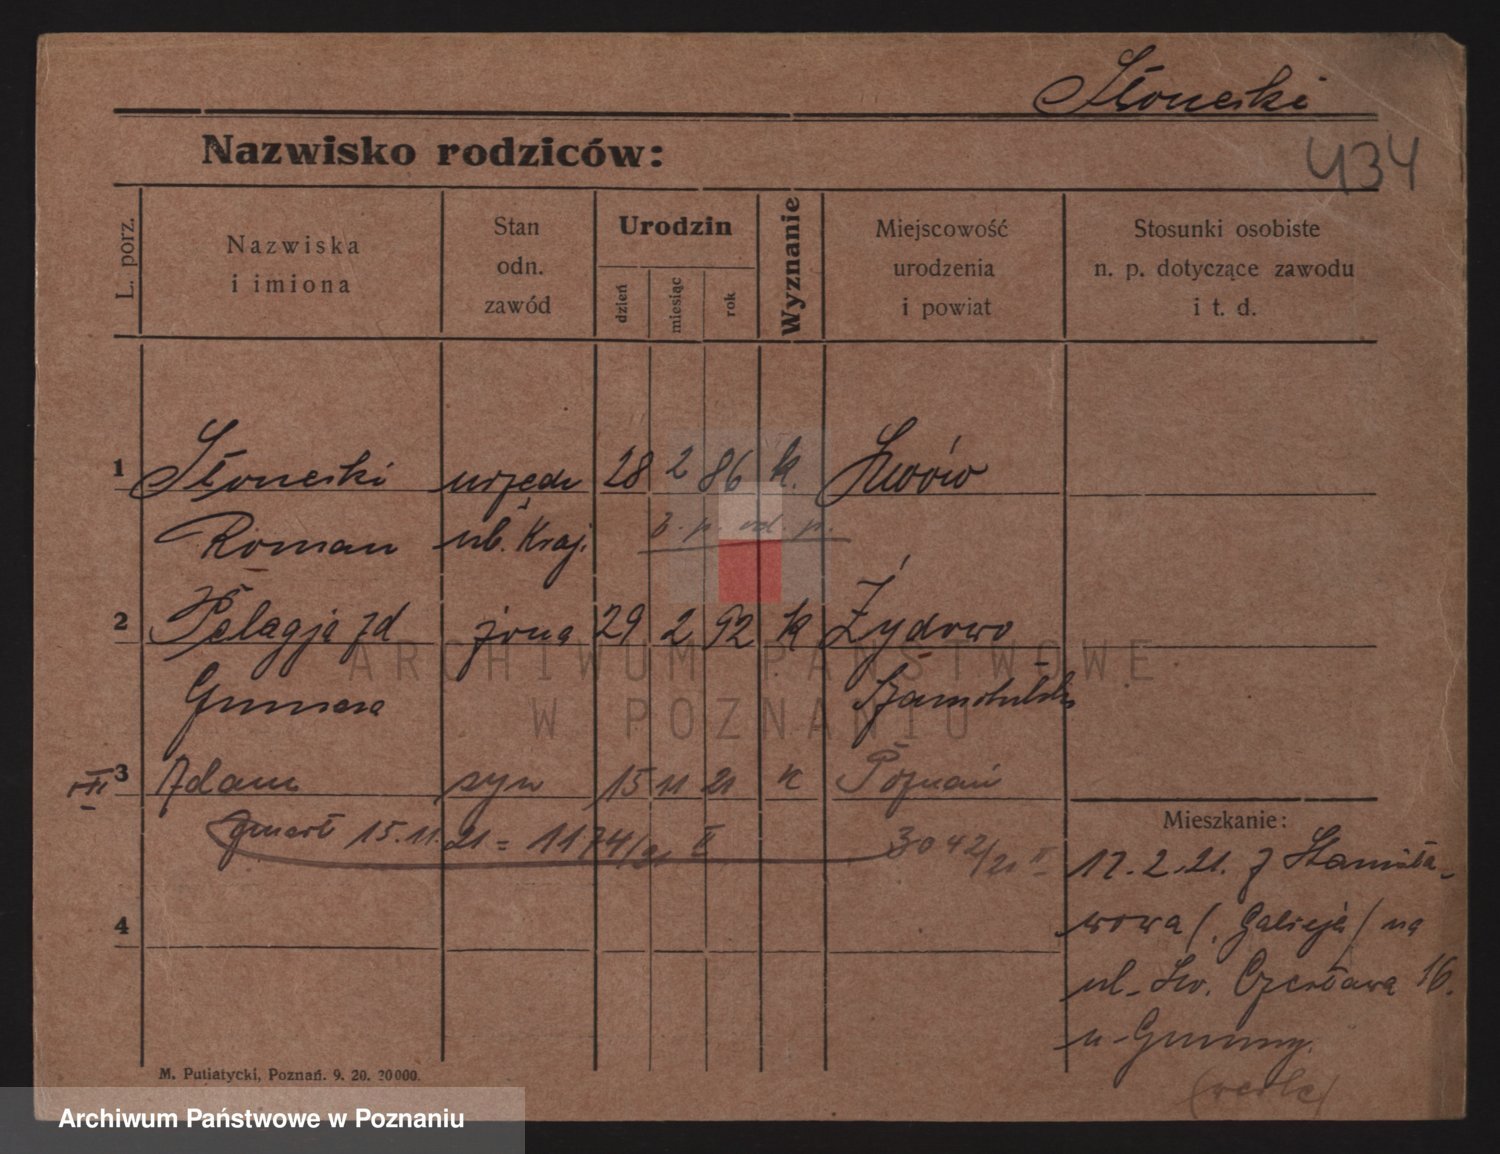 Słoneski
434
Nazwisko rodziców:
L. porz.
Nazwiska
i imiona
Stan
odn.
zawód
Urodzin
dzień
miesiąc
rok
Wyznanie
Miejscowość
urodzenia
i powiat
Stosunki osobiste
n. p. dotyczące zawodu
i t. d.
1 Słoneski urzędn 28 2 86 k. Lwów
Roman ub. Kraj. p. od. p.
2 Pelagja zd żona 29 2 92 k Żydowo
Szamotulski
3 Adam syn 15 11 21 k Poznań
zmarł 15.11.21 = 1174/21 II 3042/21 II
Mieszkanie:
17.2.21. z Stanisła-
wowa (Galicja) na
4
ul. Św. Czesława 16.
M. Putiatycki, Poznań. 9. 20. 20000.
ARCHIWUM PAŃSTWOWE
W POZNANIU
Archiwum Państwowe w Poznaniu